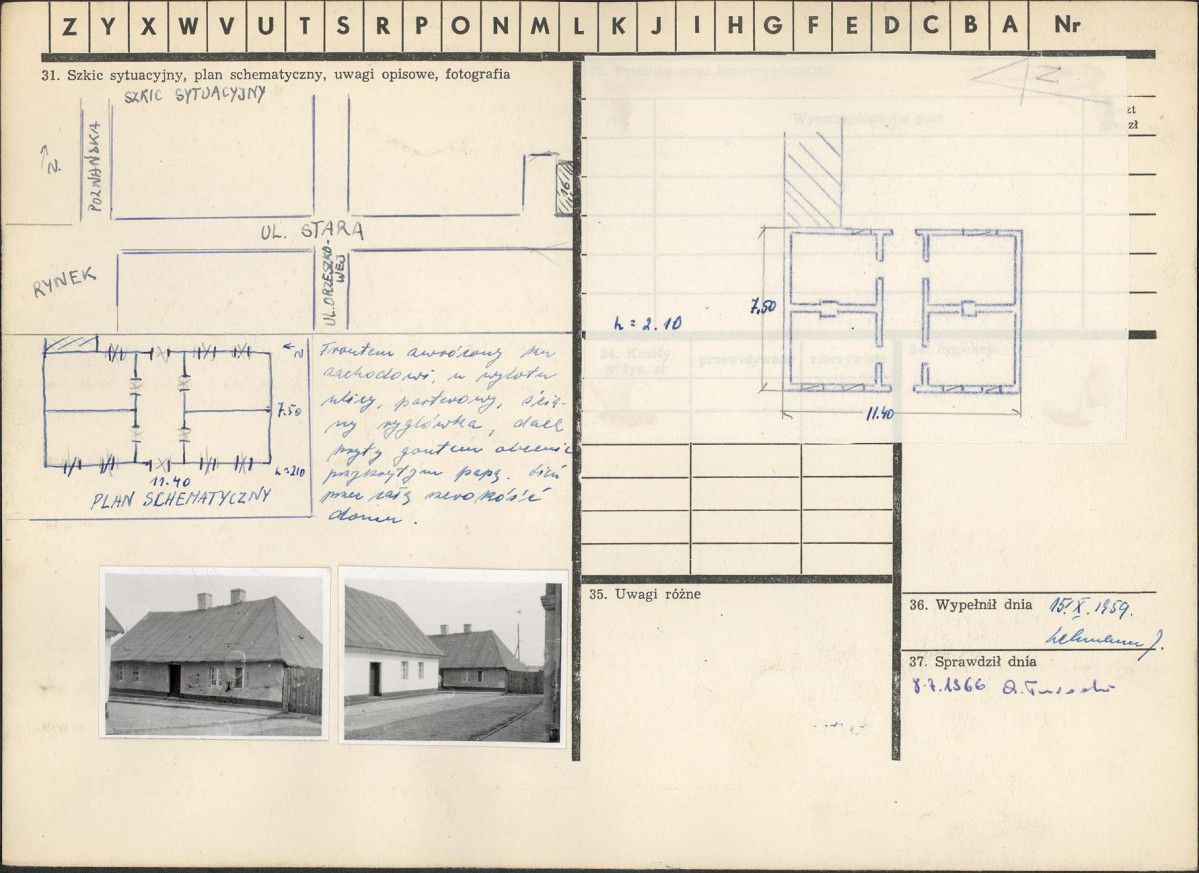 Z Y X W V U T S R P O N M L K J I H G F E D C B A Nr
31. Szkic sytuacyjny, plan schematyczny, uwagi opisowe, fotografia
SZKIC SYTUACYJNY
N.
POZNAŃSKA
16
UL. STARA
RYNEK
UL. ORZESZKO-
WEJ
N
7.50
h=210
11.40
PLAN SCHEMATYCZNY
Frontem zwrócony ku
zachodowi, u wylotu
ulicy, parterowy, ścia-
ny ryglówka, dach
kryty gontem obecnie
przykrytym papą. Sień
przez całą szerokość
domu.
N
zł
h = 2.10
7,50
11.40
34. Koszty
w tys. zł
przewidywane
rzeczywiste
35. Uwagi różne
36. Wypełnił dnia 15.X.1959.
Lehmann J.
37. Sprawdził dnia
8.7.1966